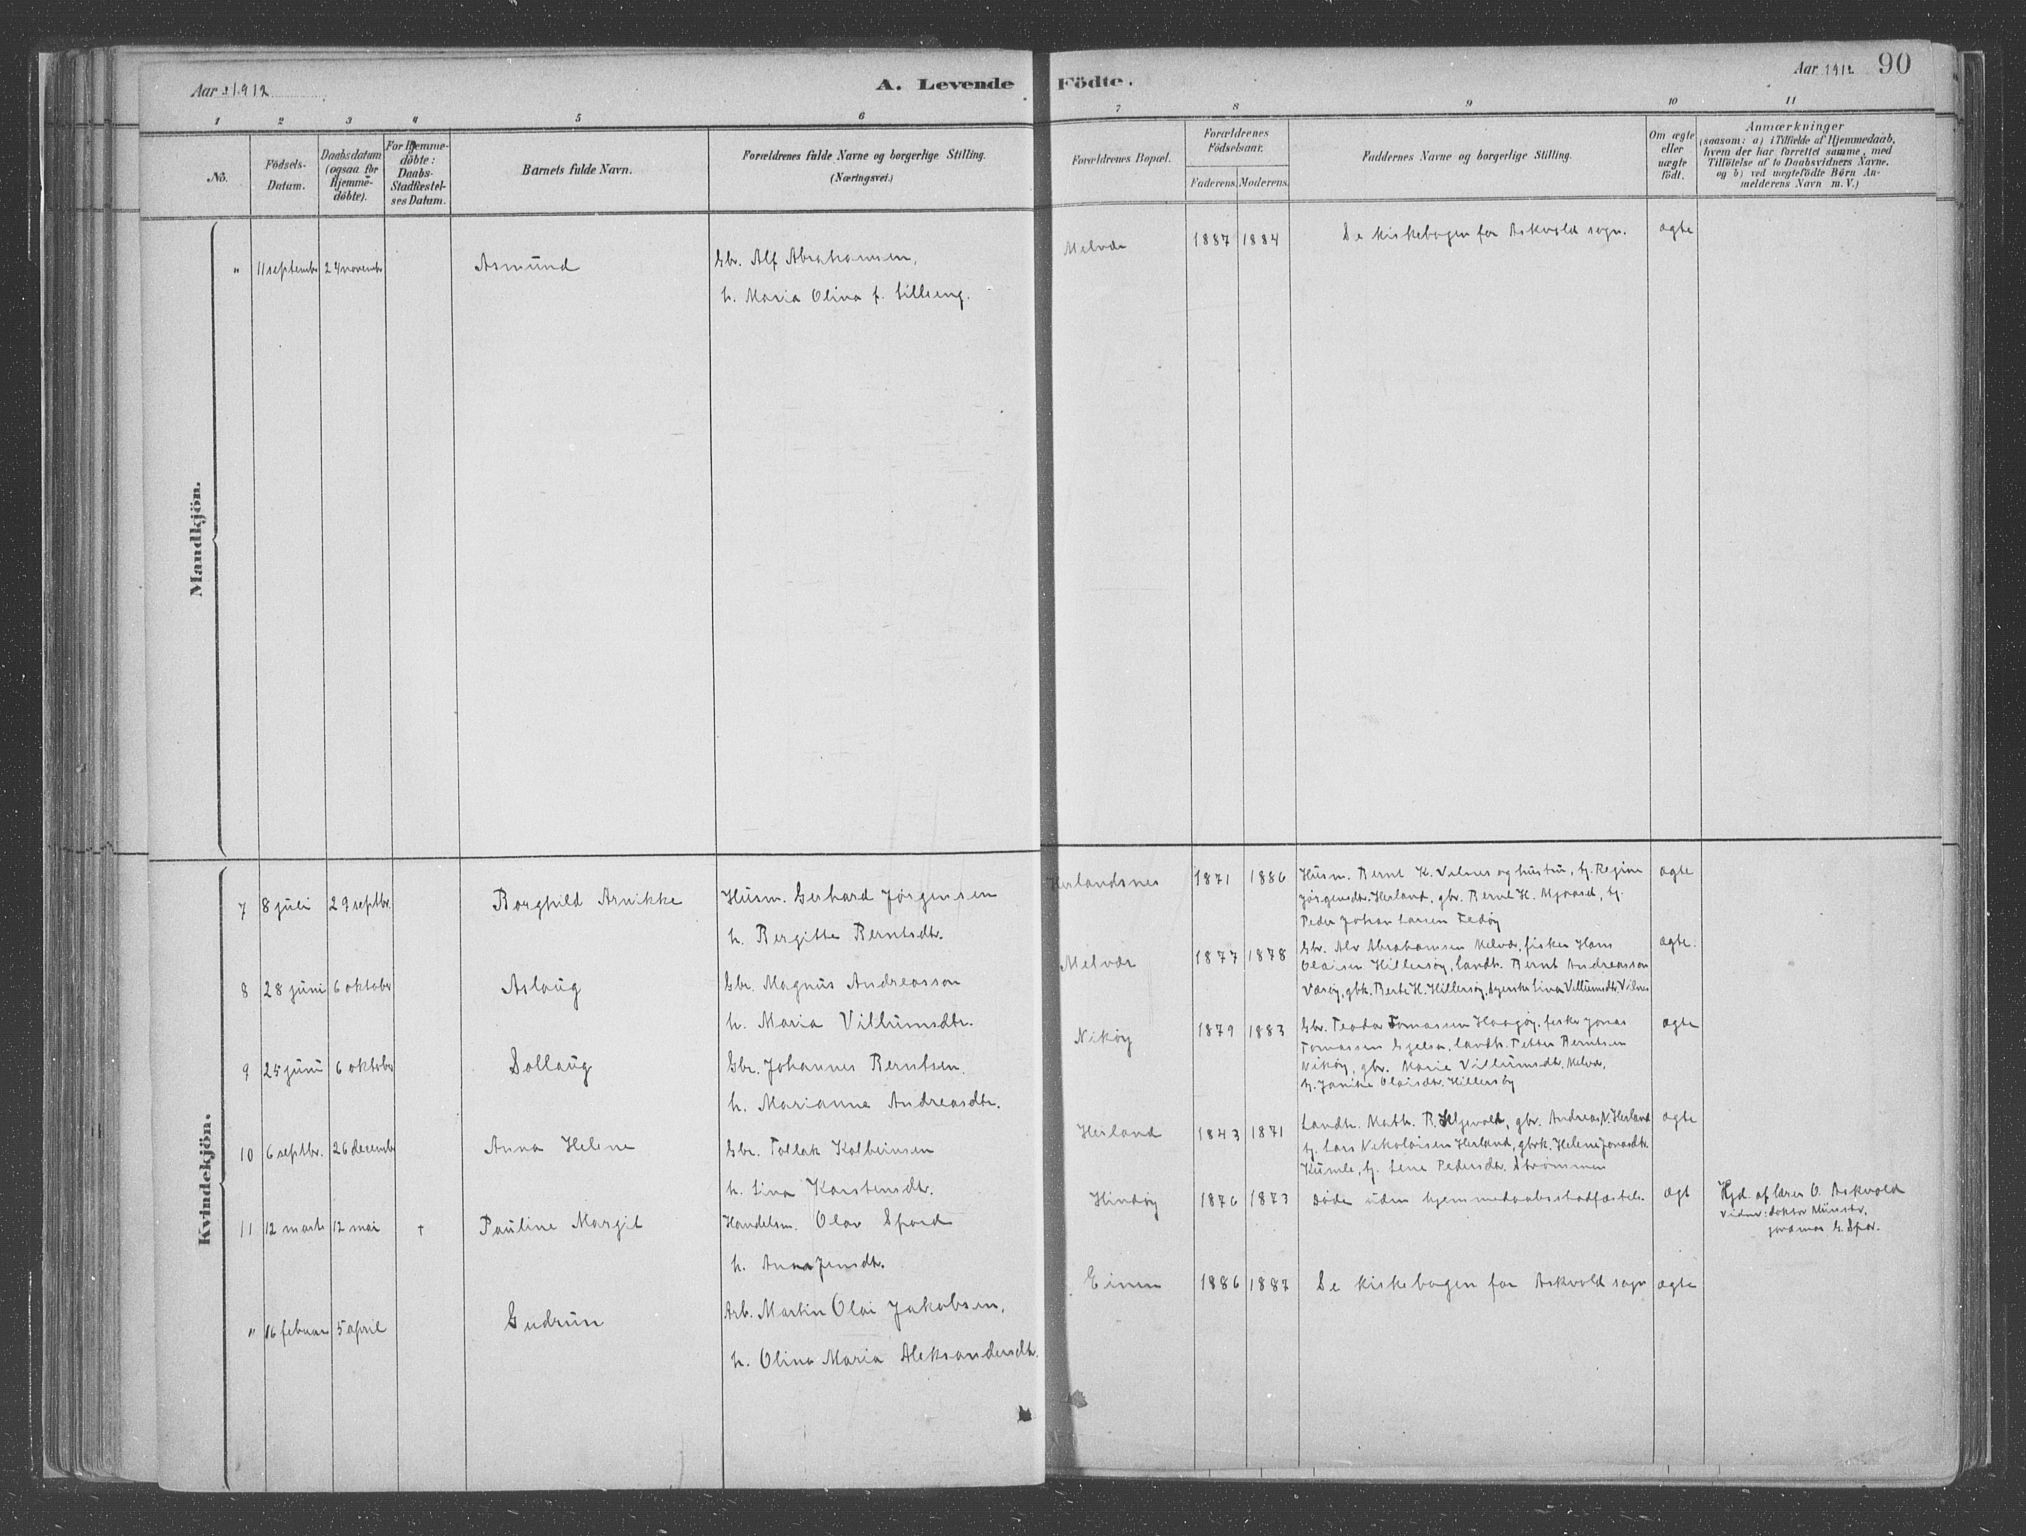 Aar 1912
A. Levende Födte.
Aar 1912 90
1 2 3 4 5 6 7 8 9 10 11
No.
Födsels-Datum.
Daabsdatum (ogsaa for Hjemmedöbte).
For Hjemmedöbte: Daabs-Stadfæstelses Datum.
Barnets fulde Navn.
Forældrenes fulde Navne og borgerlige Stilling.
(Næringsvei.)
Forældrenes Bopæl.
Forældrenes Födselsaar.
Faderens. Moderens.
Faddernes Navne og borgerlige Stilling.
Om ægte eller uægte födt.
Anmærkninger
(saasom: a) i Tilfælde af Hjemmedaab,
hvem der har forrettet samme, med
Tilföielse af to Daabsvidners Navne.
og b) ved uægtefödte Börn An-
melderens Navn m. V.)
Mandkjön.
" 11 septembr 24 novembr Asmund Gbr. Alf Abrahamsen, Melvær 1887 1884 Se kirkebogen for Askvold sogn. ægte
h. Maria Olina f. Lilleeng.
Kvindekjön.
7 8 juli 29 septbr. Borghild Annikke Husm. Gerhard Jørgensen Herlandsnes 1871 1886 Husm. Bernt K. Vilnes og hustru, tj. Regine ægte
h. Bergitte Berntsdtr. Jørgensdtr. Herland, gbr. Bernt H. tj.
Peder Johan Larsen Tedøy
8 28 juni 6 oktober Aslaug Gbr. Magnus Andreasson Melvær 1877 1878 Gbr. Alv Abrahamsen Melvær, fisker Hans ægte.
h. Maria Villumsdtr. Olaisen Hillersøy, landh. Bernt Andreasson
Værøy, gbk. Berte H. Hillersøy, Lina Villumsdtr. Vilnes
9 25 juni 6 oktober Sollaug Gbr. Johannes Berntsen. Nikøy 1879 1883 Gbr. Teodor Tomassen Haagøy, fisker Jonas ægte
h. Marianne Andreasdtr. Tomassen landh. Petter Berntsen
Nikøy, gbr. Marie Villumsdtr. Melvær,
tj. Janike Olaisdtr. Hillersøy
10 6 septbr. 26 decembr Anna Helene Gbr. Tollak Kolbeinsen Herland 1843 1871 Landh. Math. R. gbr. Andreas N. Herland ægte
h. Lina Karstensdtr. tj. Lars Nikolaisen Herland, gbrk. Helene Jonasdtr.
Kumle, tj. Lene Pedersdtr. Strømmen
11 12 marts 12 mai † Pauline Margit Handelsm. Olav Spord Hindøy 1876 1873 Døde uden hjemmedaabsstadfæstels. ægt Hjd. af lærer O. Askvold
h. Anna Jensdtr. vidner: doktor Münster,
jordmor G. Spor.
" 16 februar 5 april Gudrun Arb. Martin Olai Jakobsen, Einen 1886 1887 Se kirkebogen for Askvold sogn ægte
h. Olina Maria Aleksandersdtr.